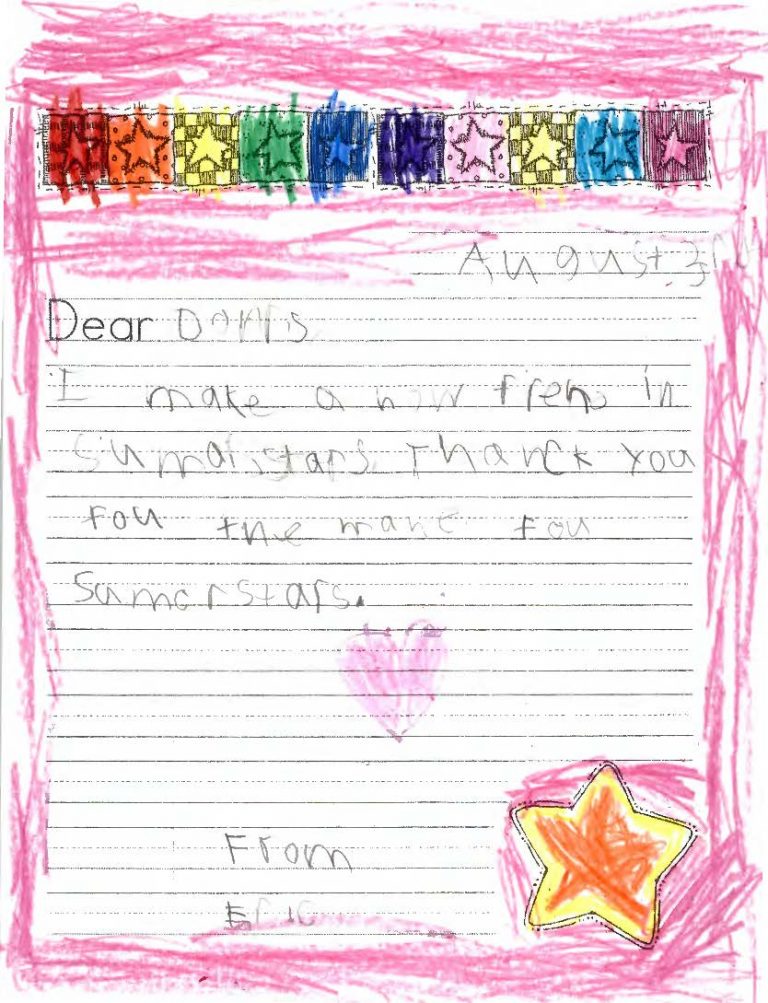 August 3rd
Dear
I make a now frend in
Sumarstars Thanck you
fou the make fou
Samerstars.
From
Eric